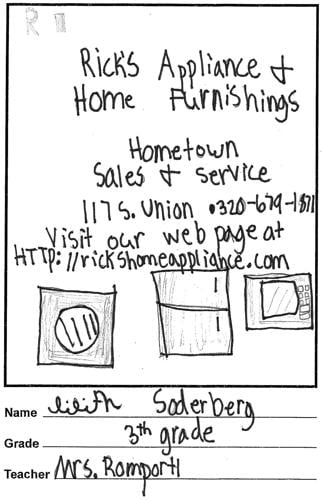 Rick's Appliance &
Home Furnishings
Hometown
Sales & Service
117 S. Union • 320-679-1371
Visit our web page at
HTTP://rickshomeappliance.com
Name Lilith Soderberg
Grade 3th grade
Teacher Mrs. Romportl